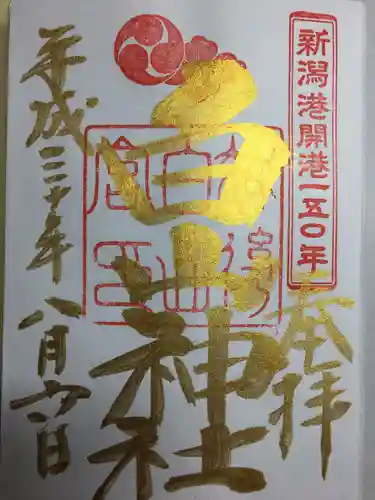 新潟港開港一五〇年
奉拝
白山神社
平成三十年八月六日